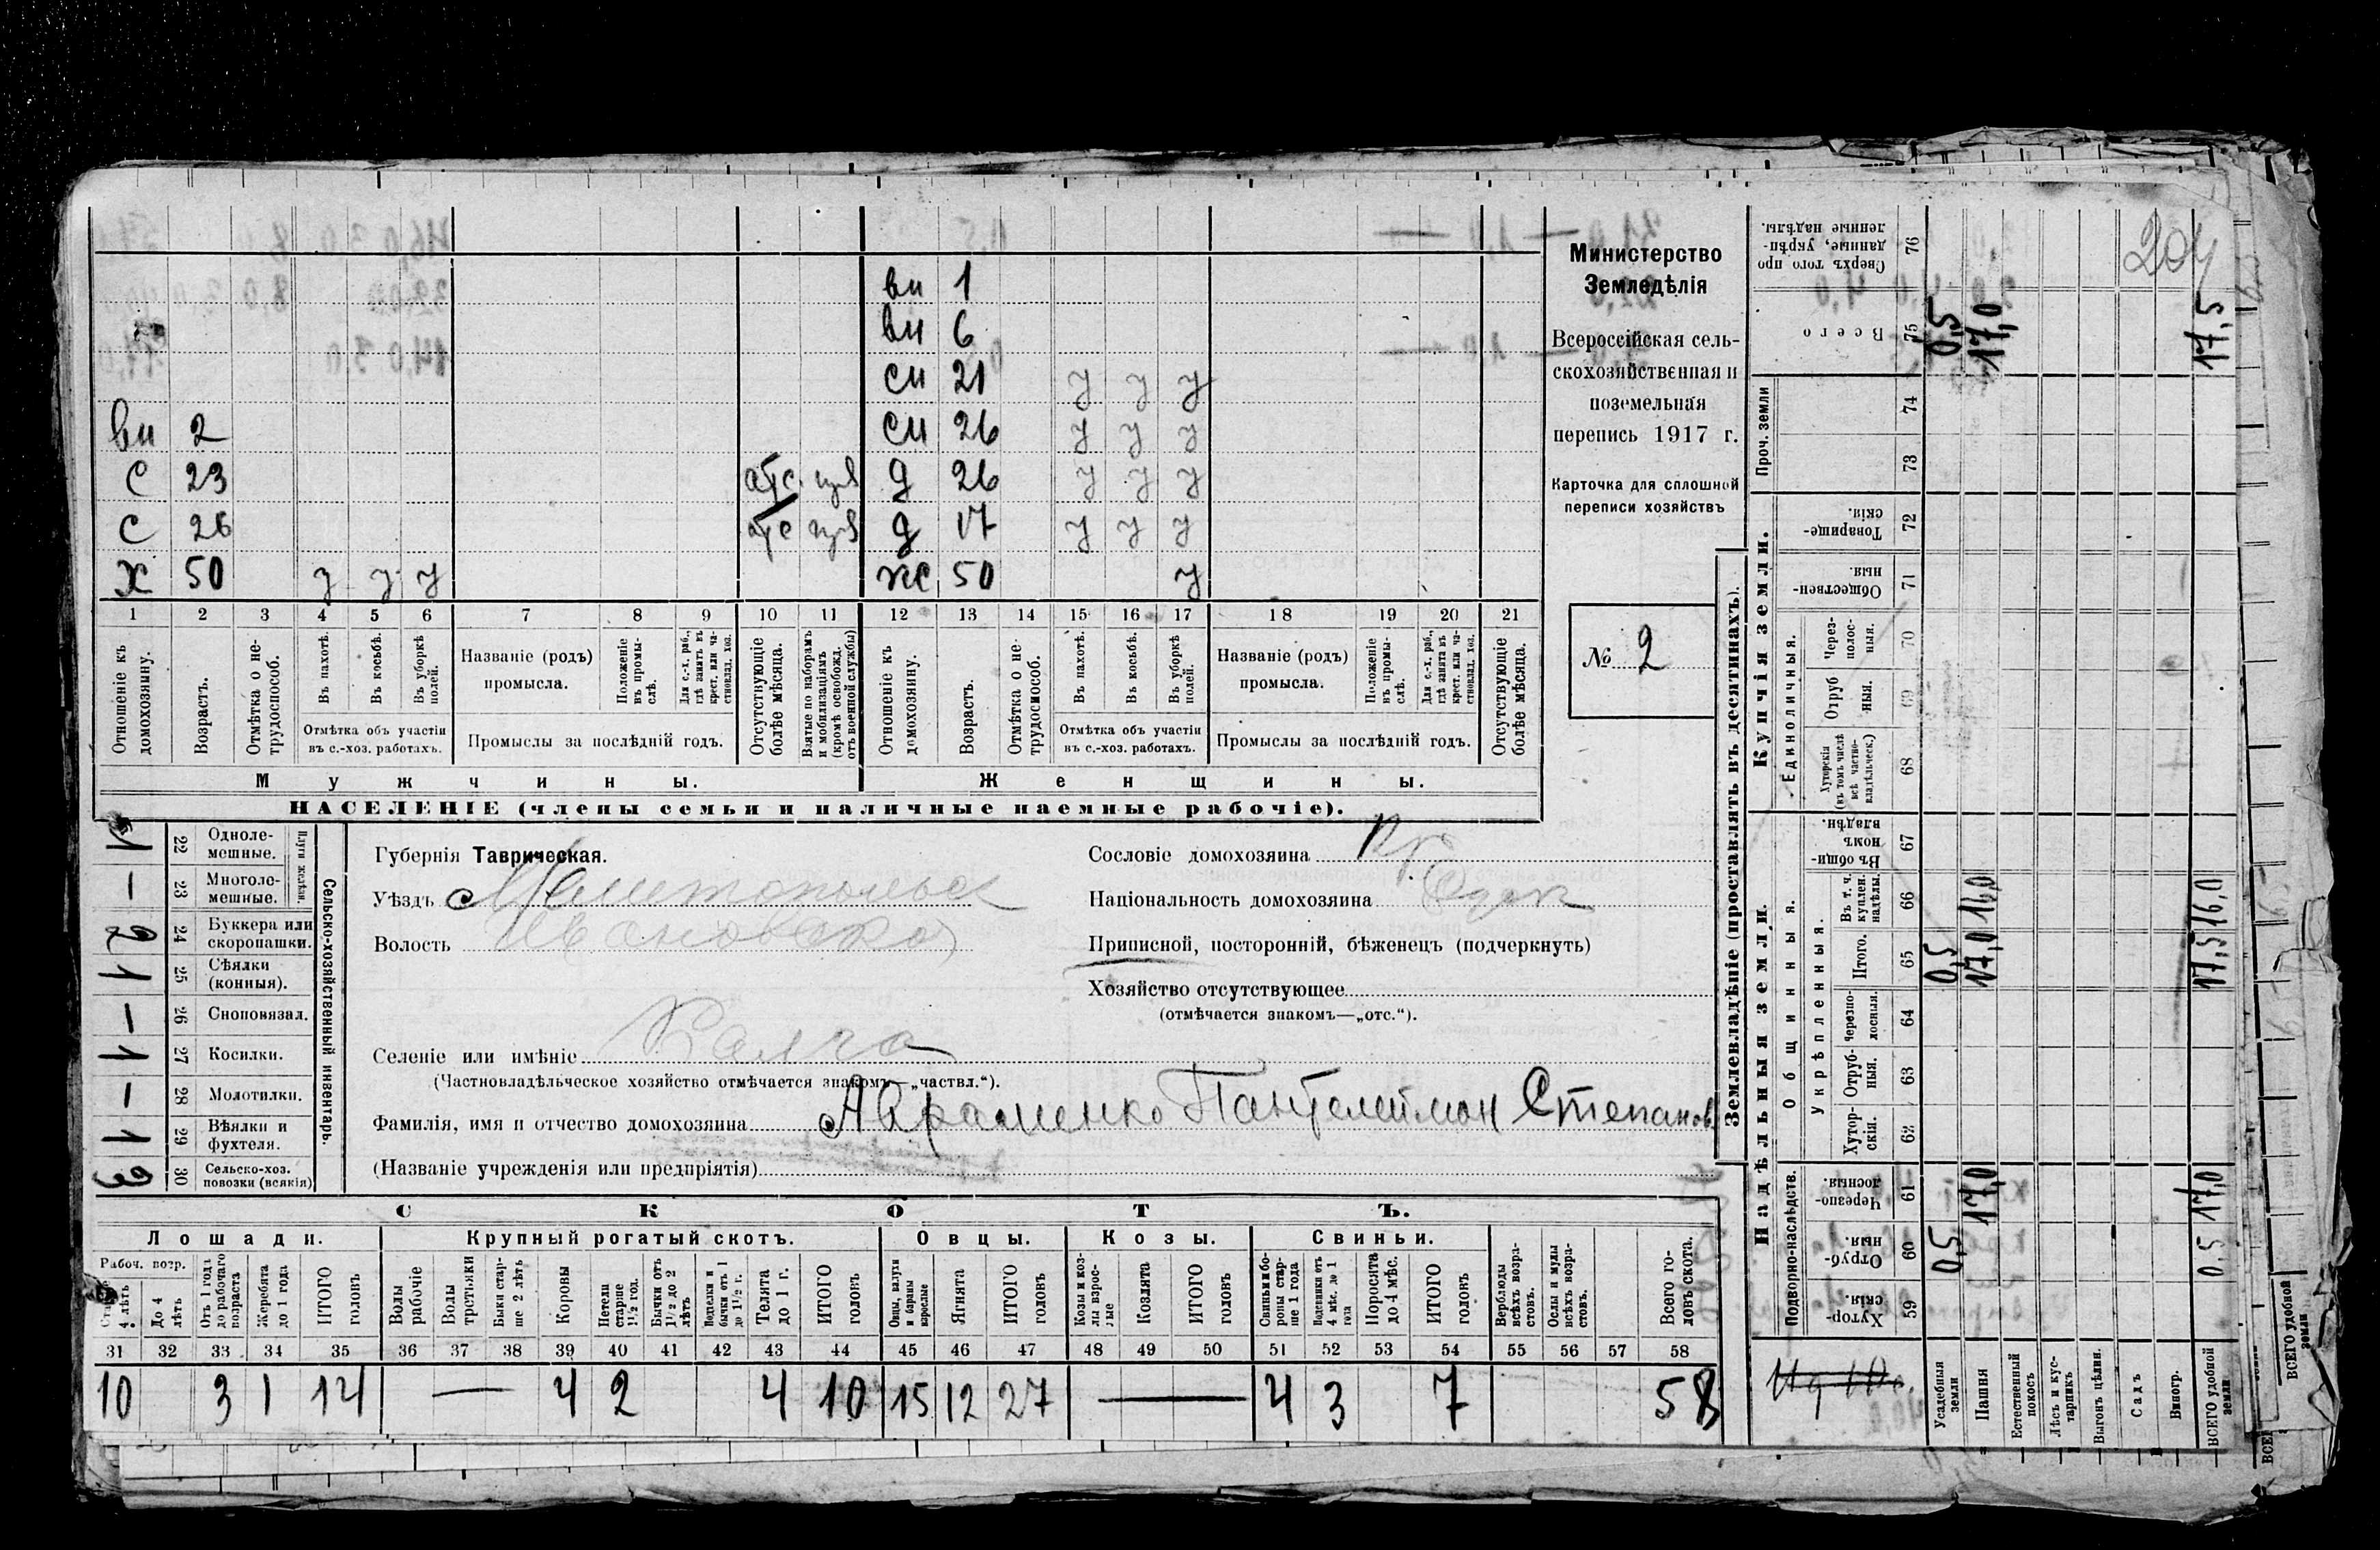 204
вн 1
вн 6
сн 21 у у у
вн 2 сн 26 у у у
с 23 отс д 26 у у у
с 26 отс д 17 у у у
х 50 у у у ж 50 у
1 2 3 4 5 6 7 8 9 10 11 12 13 14 15 16 17 18 19 20 21
Отношеніе къ домохозяину.
Возрастъ.
Отмѣтка о нетрудоспособ.
Въ пахотѣ.
Въ косьбѣ.
Въ уборкѣ полей.
Отмѣтка объ участіи
въ с.-хоз. работахъ.
Названіе (родъ)
промысла.
Положеніе въ промыслѣ.
Для с.-х. раб., гдѣ занятъ въ крест. или частновлад. хоз.
Промыслы за послѣдній годъ.
Отсутствующіе болѣе мѣсяца.
Взятые по наборамъ и мобилизаціямъ (кромѣ освобожд. отъ военной службы)
Отношеніе къ домохозяину.
Возрастъ.
Отмѣтка о нетрудоспособ.
Въ пахотѣ.
Въ косьбѣ.
Въ уборкѣ полей.
Отмѣтка объ участіи
въ с.-хоз. работахъ.
Названіе (родъ)
промысла.
Положеніе въ промыслѣ.
Для с.-х. раб., гдѣ занята въ крест. или частновлад. хоз.
Промыслы за послѣдній годъ.
Отсутствующіе болѣе мѣсяца.
Мужчины. Женщины.
НАСЕЛЕНІЕ (члены семьи и наличные наемные рабочіе).
Министерство
Земледѣлія
Всероссійская сель-
скохозяйственная и
поземельная
перепись 1917 г.
Карточка для сплошной
переписи хозяйствъ
№ 2
Сельско-хозяйственный инвентарь.
Плуги желѣзн.
1 22 Одноле-
мешные.
— 23 Многоле-
мешные.
2 24 Буккера или
скоропашки.
1 25 Сѣялки
(конныя).
— 26 Сноповязал.
1 27 Косилки.
— 28 Молотилки.
1 29 Вѣялки и
фухтеля.
3 30 Сельско-хоз.
повозки (всякія)
Губернія Таврическая.
Уѣздъ Мелитопольск
Волость Ивановска
Селеніе или имѣніе
(Частновладѣльческое хозяйство отмѣчается знакомъ—„частвл.“).
Фамилія, имя и отчество домохозяина Авраменко Пантелеймон Степанов
(Названіе учрежденія или предпріятія)
Сословіе домохозяина кр
Національность домохозяина
Приписной, посторонній, бѣженецъ (подчеркнуть)
Хозяйство отсутствующее
(отмѣчается знакомъ—„отс.“).
СКОТЪ.
Лошади. Крупный рогатый скотъ. Овцы. Козы. Свиньи.
Рабоч. возр.
Старше 4 лѣтъ
До 4 лѣтъ
Отъ 1 года до рабочаго возраста
Жеребята до 1 года
ИТОГО головъ
Волы рабочіе
Волы третьяки
Быки старше 2 лѣтъ
Коровы
Нетели старше 1½ год.
Бычки отъ 1½ до 2 лѣтъ
Подтелки и бычки отъ 1 до 1½ г.
Телята до 1 г.
ИТОГО головъ
Овцы, валухи и бараны взрослые
Ягнята
ИТОГО головъ
Козы и козлы взрослые
Козлята
ИТОГО головъ
Свиньи и боровы старше 1 года
Подсвинки отъ 4 мѣс. до 1 года
Поросята до 4 мѣс.
ИТОГО головъ
Верблюды всѣхъ возрастовъ.
Ослы и мулы всѣхъ возрастовъ.
Всего головъ скота.
31 32 33 34 35 36 37 38 39 40 41 42 43 44 45 46 47 48 49 50 51 52 53 54 55 56 57 58
10 3 1 14 — 4 2 4 10 15 12 27 — 4 3 7 58
Землевладѣніе (проставлять въ десятинахъ).
Надѣльныя земли. Купчія земли. Проч. земли
Подворно-наслѣдств. Общинныя. Укрѣпленныя. Единоличныя.
Хуторскія 59
Отрубныя. 60
Черезполосныя. 61
Хуторскія. 62
Отрубныя. 63
Черезполосныя. 64
Итого. 65
Въ т. ч. куплен. надѣлы. 66
Въ общинномъ владѣн. 67
Хуторскія (въ томъ числѣ всѣ частновладѣльческ.) 68
Отрубныя. 69
Черезполосныя. 70
Общественныя. 71
Товарищескія. 72
73
74
Всего 75
Сверхъ того проданные, укрѣпленные надѣлы. 76
Усадебныя земли 0,5 0,5 0,5
Пашня 17,0 17,0 16,0 17,0
Естественный покосъ
Лѣсъ и кустарникъ
Выгонъ цѣлин.
Садъ
Виногр.
ВСЕГО удобной земли 0.5 17,0 17,5 16,0 17,5
ВСЕГО удобной земли